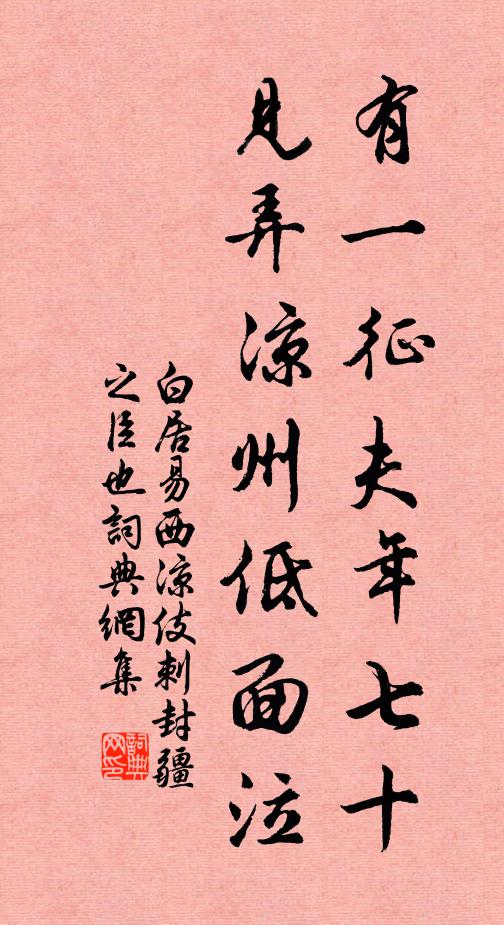 有一征夫年七十
見弄涼州低面泣
白居易西涼伎刺封疆
之臣也詞典網集
詞典
网印